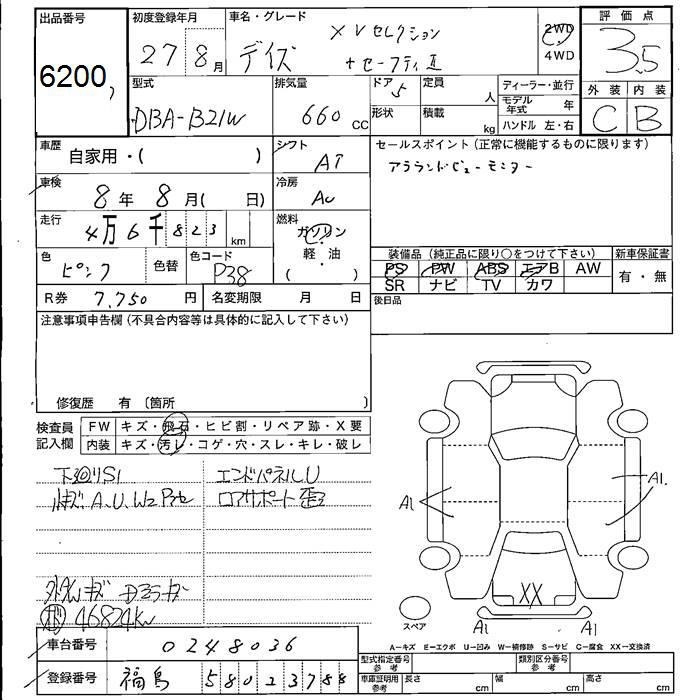 出品番号
6200
初度登録年月
27 8月
車名・グレード
デイズ
XVセレクション
+セーフティⅡ
2WD
4WD
評価点
3.5
外装 内装
C B
型式
DBA-B21W
排気量
660 CC
ドア 5
形状
定員 人
積載 kg
ディーラー・並行
モデル年式 年
ハンドル 左・右
車歴
自家用・( )
シフト
AT
セールスポイント(正常に機能するものに限ります)
アラウンドビューモニター
車検
8年 8月( 日)
冷房
AC
走行
4万6千823 km
燃料
ガソリン
・
軽・油
( )
色
ピンク
色替
色コード
P38
装備品(純正品に限り○をつけて下さい)
PS PW ABS エアB AW
SR ナビ TV カワ
新車保証書
有・無
R券 7,750 円
名変期限 月 日
後日品
注意事項申告欄(不具合内容等は具体的に記入して下さい)
修復歴 有 〔箇所 〕
検査員
記入欄
FW キズ・飛石・ヒビ割・リペア跡・X要
内装 キズ・汚レ・コゲ・穴・スレ・キレ・破レ
下廻りS1
エンドパネルU
A.U.W2
ロアサポート歪
46824km
A1
A1.
XX
A1
A1
スペア
A―キズ E―エクボ U―凹み W―補修跡 S―サビ C―腐食 XX―交換済
車台番号
0248036
登録番号
福島 580 2378
型式指定番号
参考
類別区分番号
参考
車庫証明用
参考
長さ cm
幅 cm
高さ cm